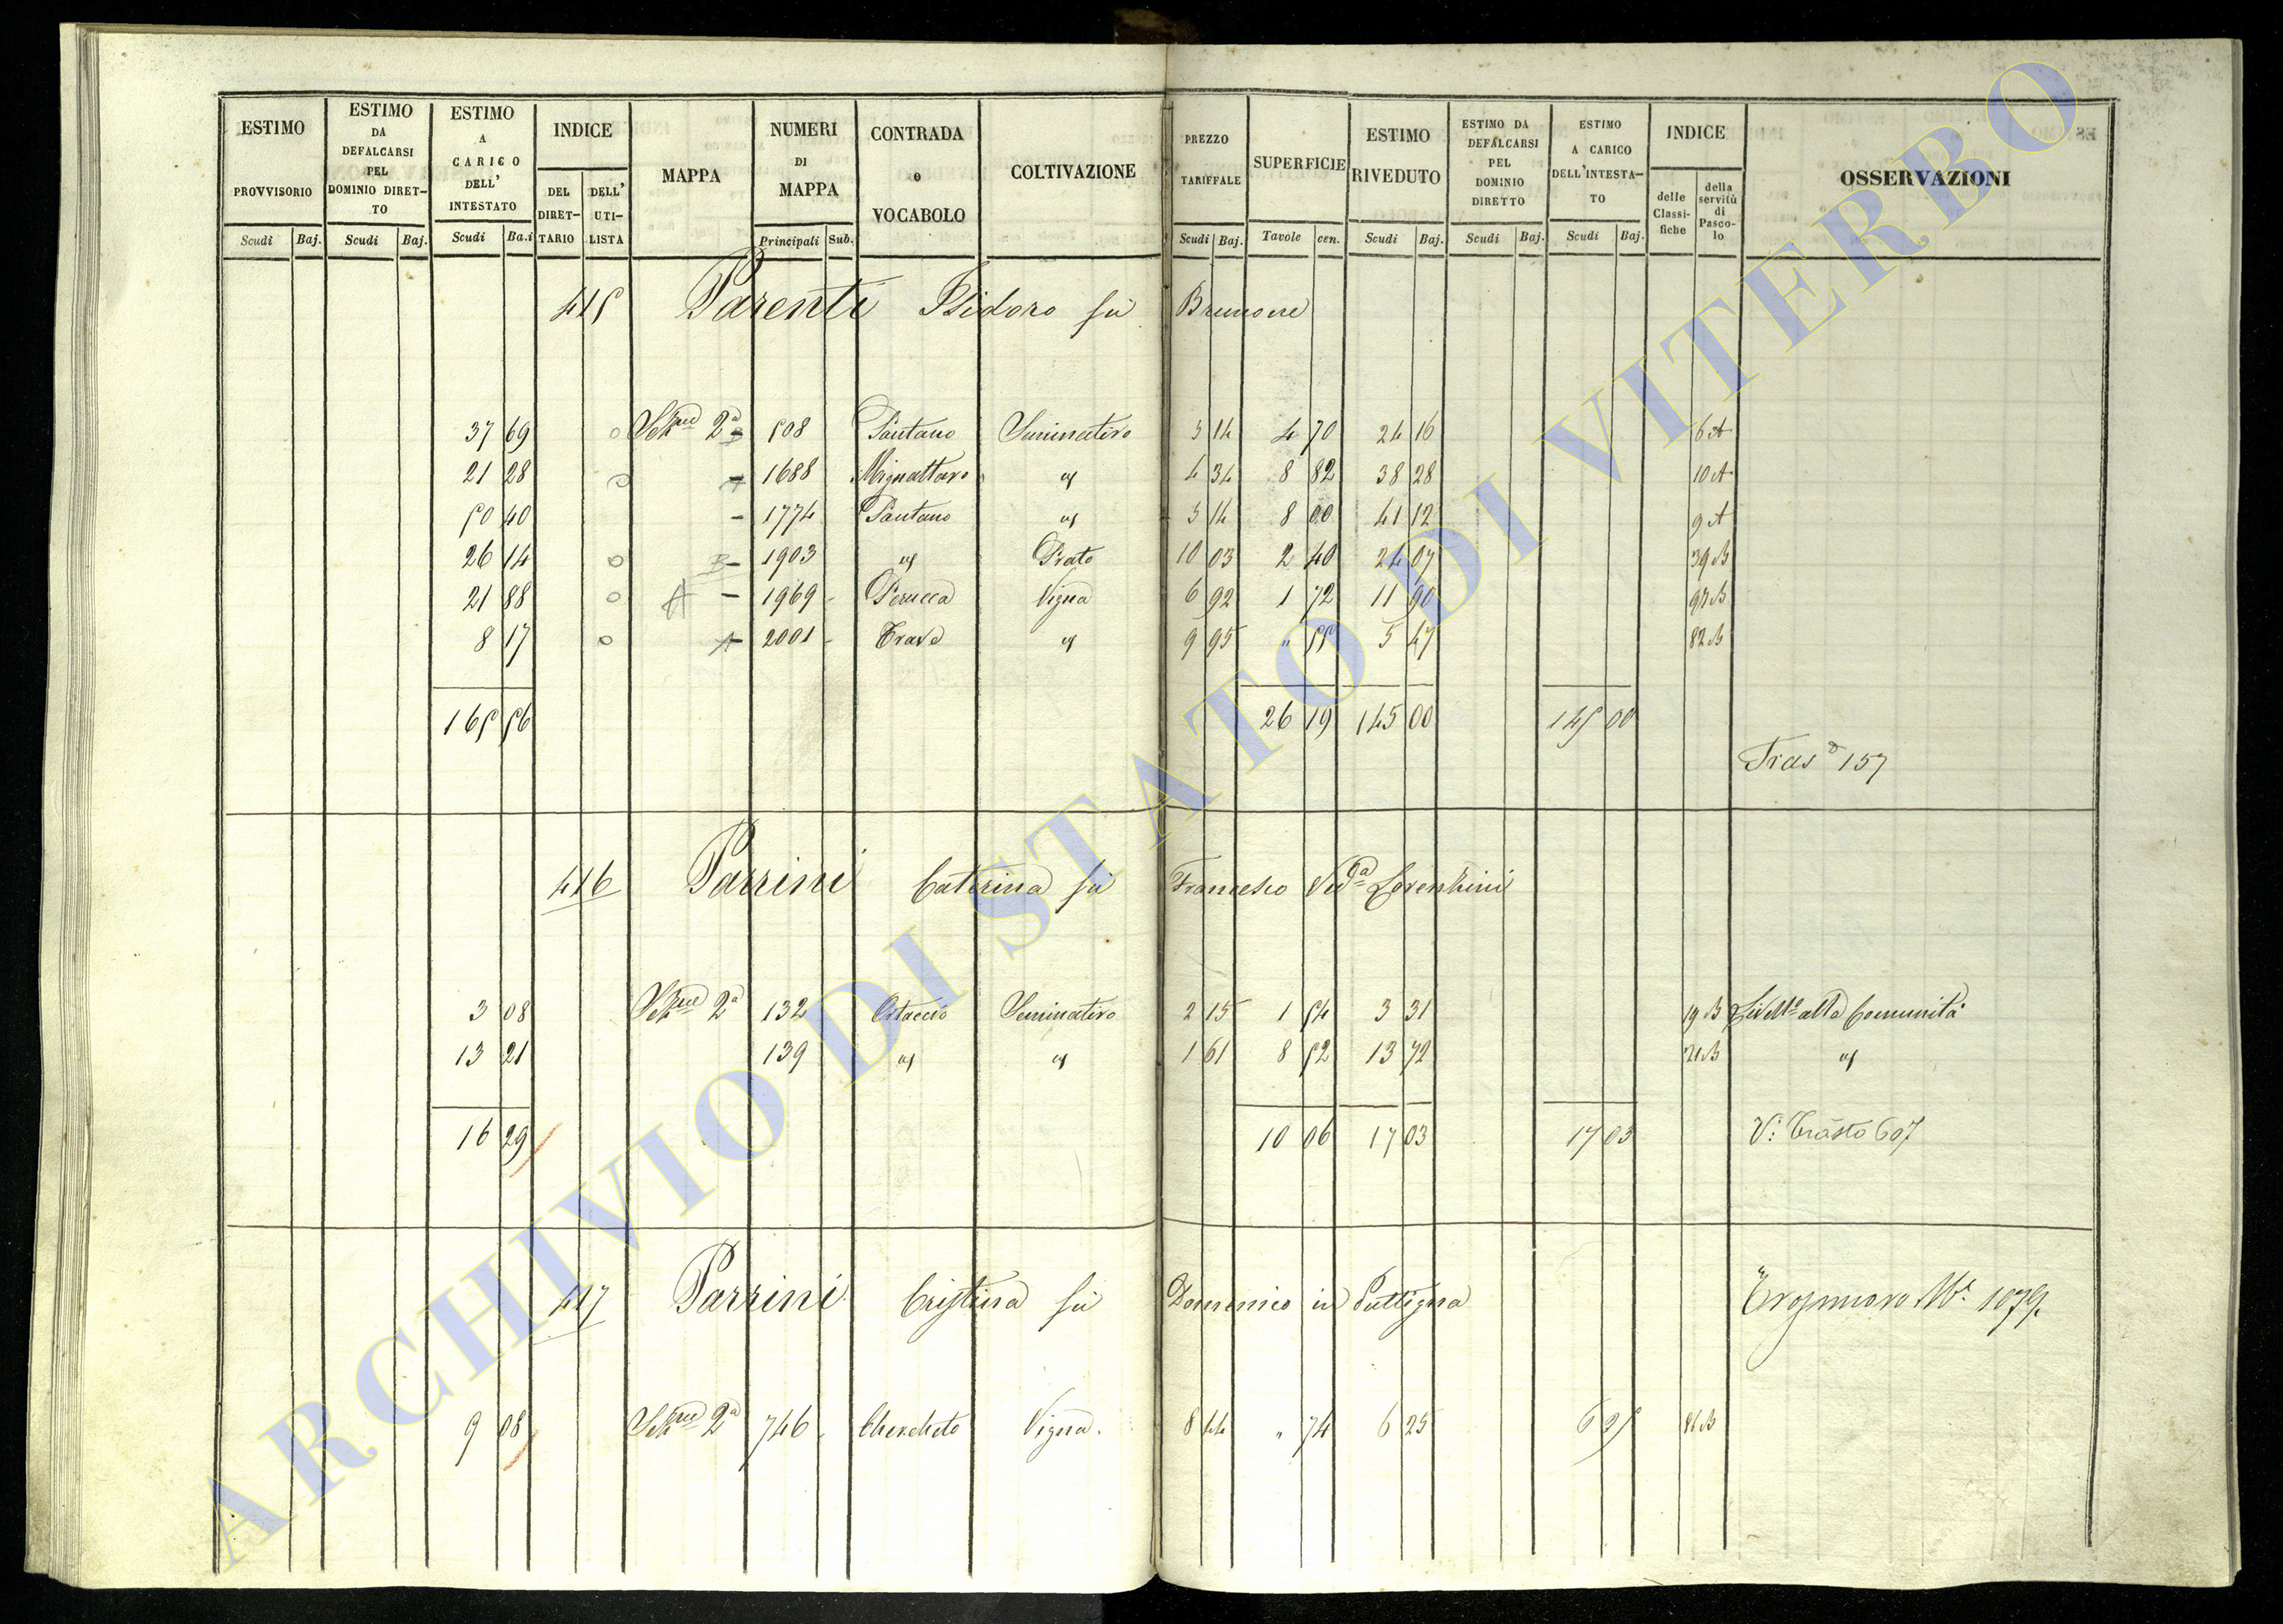 ESTIMO PROVVISORIO Scudi Baj.
ESTIMO DA DEFALCARSI PEL DOMINIO DIRET-TO Scudi Baj.
ESTIMO A CARICO DELL' INTESTATO Scudi Ba.i
INDICE DEL DIRET-TARIO DELL' UTI-LISTA
MAPPA
NUMERI DI MAPPA Principali Sub.
CONTRADA o VOCABOLO
COLTIVAZIONE
PREZZO TARIFFALE Scudi Baj.
SUPERFICIE Tavole cen.
ESTIMO RIVEDUTO Scudi Baj.
ESTIMO DA DEFALCARSI PEL DOMINIO DIRETTO Scudi Baj.
ESTIMO A CARICO DELL'INTESTA-TO Scudi Baj.
INDICE delle Classi-fiche della servitù di Pasco-lo
OSSERVAZIONI
415 Parenti Isidoro fu Brunone
37 69 Sez.ne 2a 508 Pantano Seminativo 5 14 4 70 24 16 6 A
21 28 1688 Mignattaro " 4 34 8 82 38 28 10 A
50 40 1774 Pantano " 5 14 8 00 41 12 9 A
26 14 B 1903 " Prato 10 03 2 40 24 07 39 B
21 88 A 1969 Perucca Vigna 6 92 1 72 11 90 B
8 17 A 2001 Trave " 9 95 " 55 5 47 82 B
165 56 26 19 145 00 145 00
Tras.o 157
416 Parrini Caterina fu Francesco Ved.a Lorenzini
3 08 Sez.ne 2a 132 Ortaccio Seminativo 2 15 1 54 3 31 19 B Liv.llo alla Comunità
13 21 139 " " 1 61 8 52 13 72 21 B "
16 29 10 06 17 03 17 03 V: Trasto 607
417 Parrini Cristina fu Domenico in Puttigna 1079
9 08 Sez.ne 2a 746 Chercheto Vigna 8 44 " 74 6 25 6 25 B
ARCHIVIO DI STATO DI VITERBO